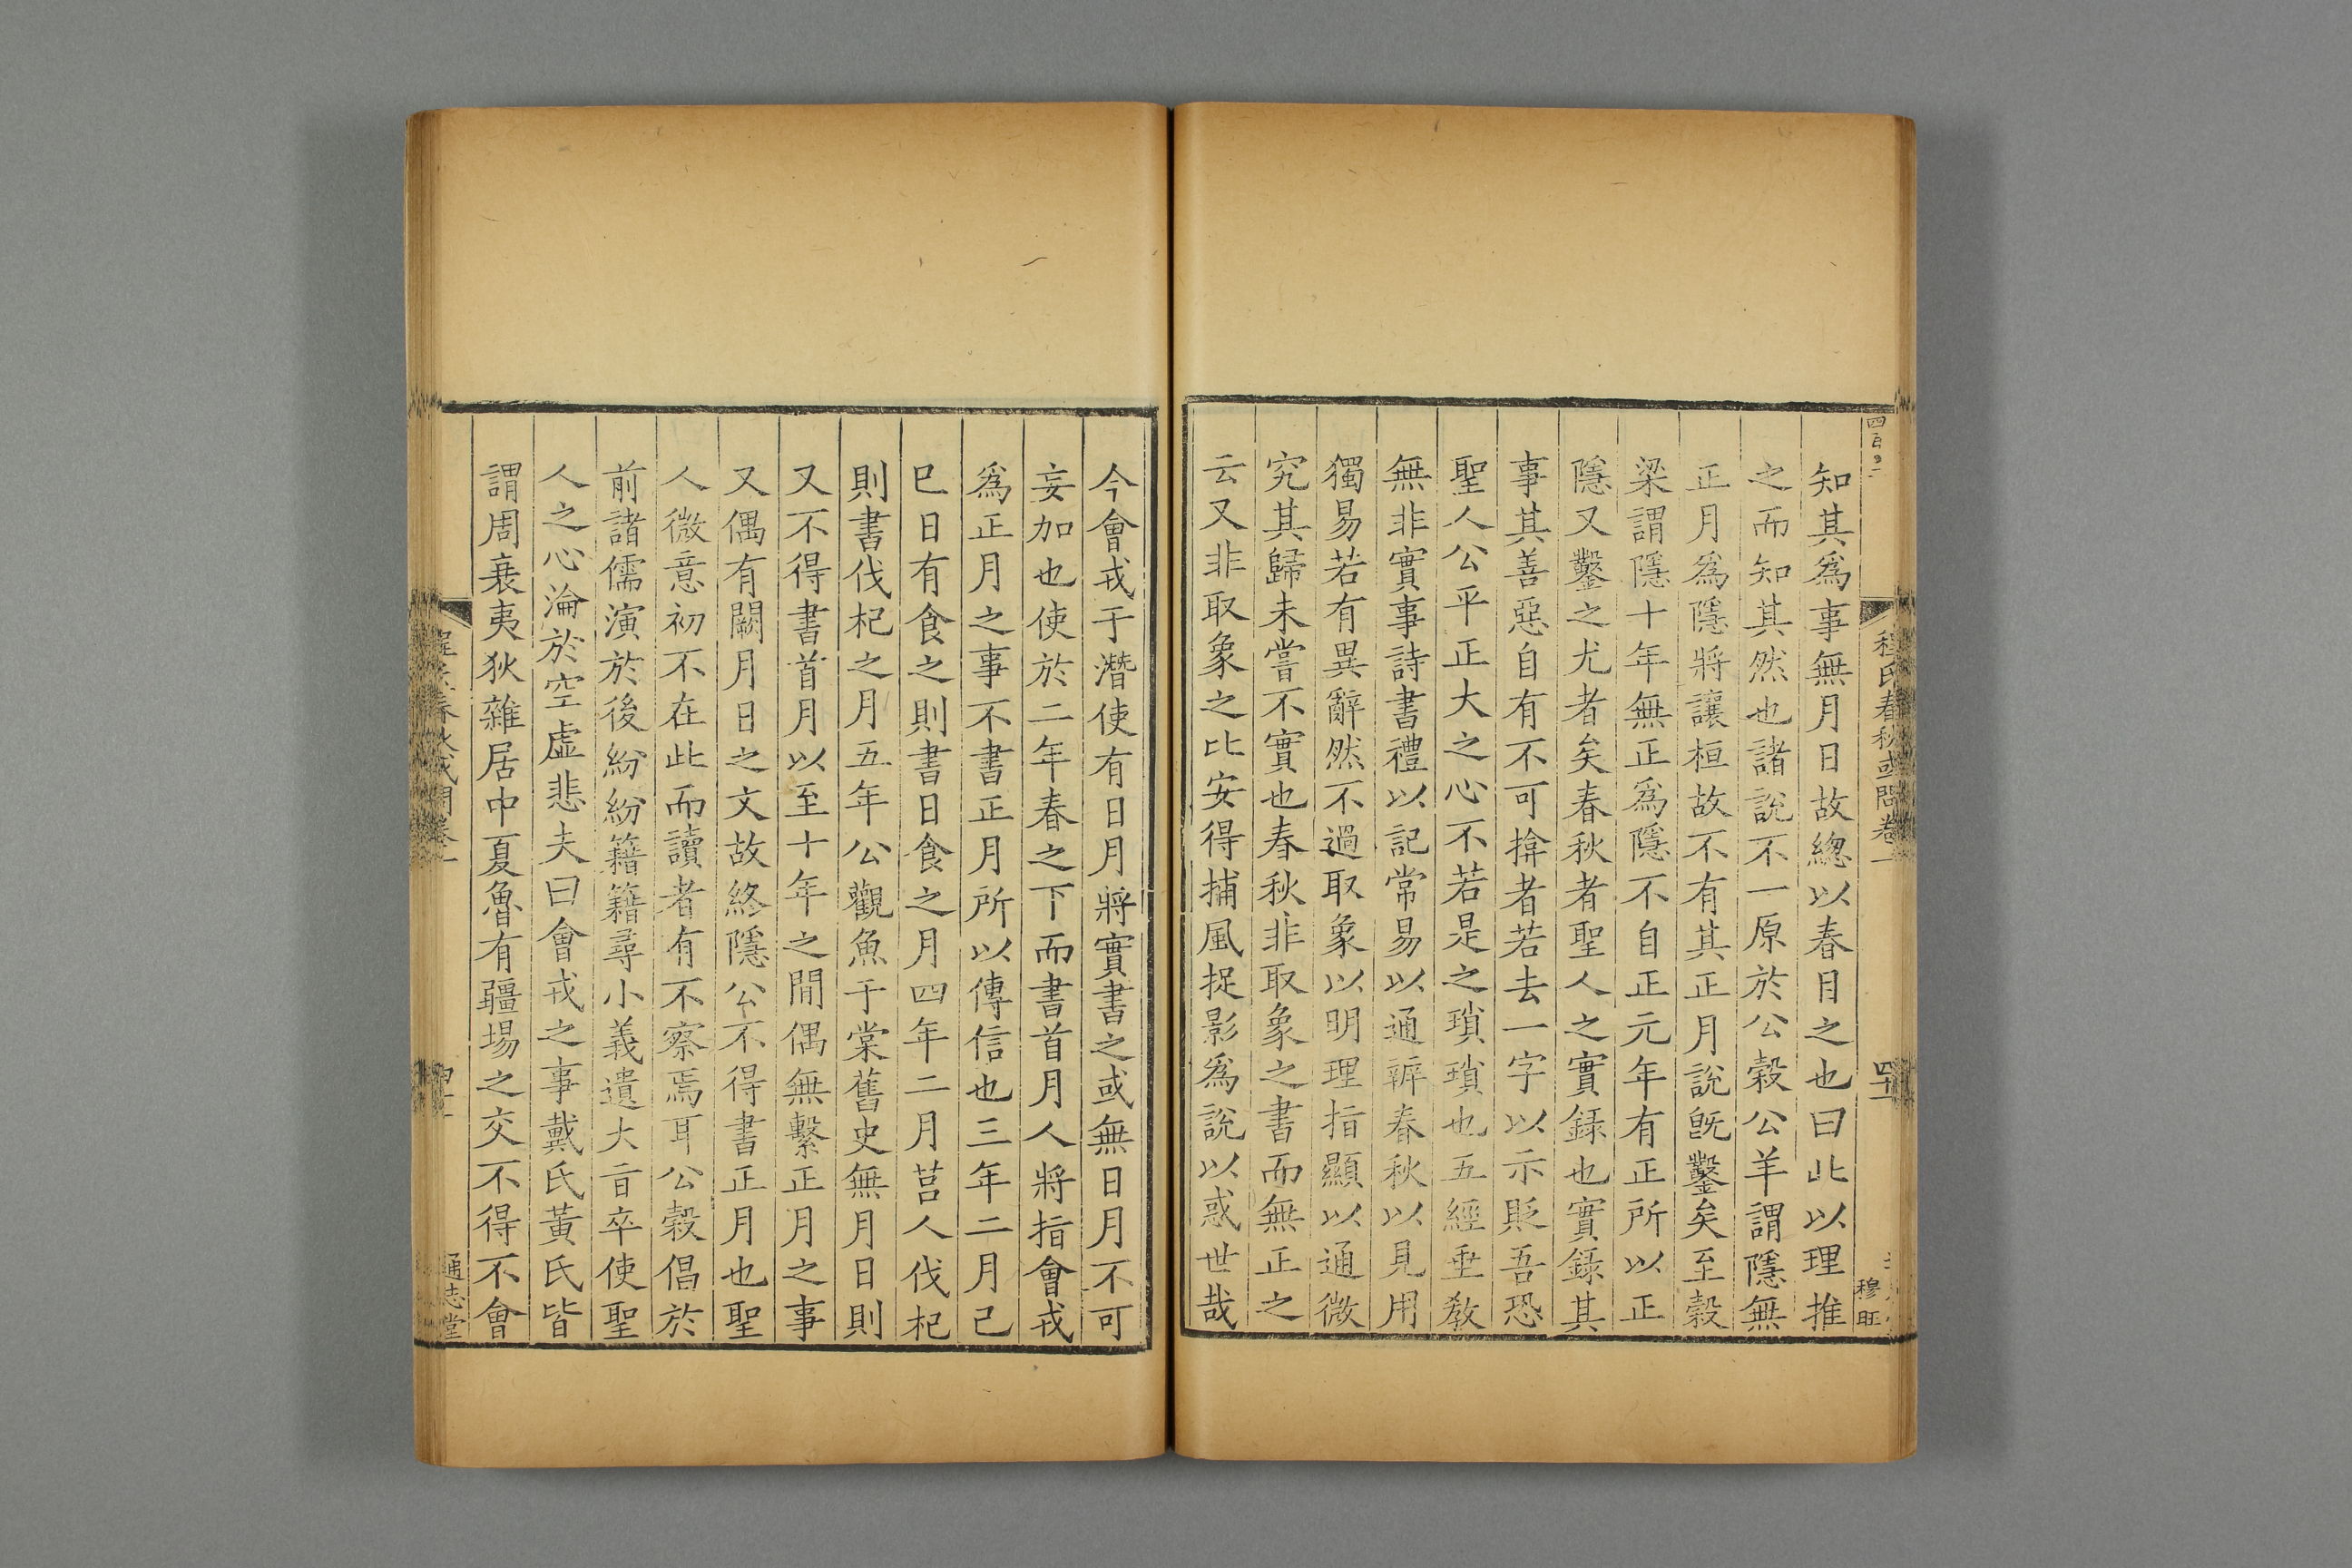 程氏春秋或問卷一
穆旺
知其爲事無月日故緫以春目之也曰此以理推
之而知其然也諸說不一原於公榖公羊謂隱無
正月爲隱將讓桓故不有其正月說旣鑿矣至榖
梁謂隱十年無正爲隱不自正元年有正所以正
隱又鑿之尤者矣春秋者聖人之實録也實録其
事其善惡自有不可揜者若去一字以示貶吾恐
聖人公平正大之心不若是之瑣瑣也五經垂教
無非實事詩書禮以記常易以通辨春秋以見用
獨易若有異辭然不過取象以明理指顯以通微
究其歸未嘗不實也春秋非取象之書而無正之
云又非取象之比安得捕風捉影爲說以惑世哉
今會戎于潛使有日月將實書之或無日月不可
妄加也使於二年春之下而書首月人將指會戎
爲正月之事不書正月所以傳信也三年二月己
巳日有食之則書日食之月四年二月莒人伐杞
則書伐杞之月五年公觀魚于棠舊史無月日則
又不得書首月以至十年之閒偶無繫正月之事
又偶有闕月日之文故終隱公不得書正月也聖
人微意初不在此而讀者有不察焉耳公榖倡於
前諸儒演於後紛紛籍籍尋小義遺大㫖卒使聖
人之心淪於空虛悲夫曰會戎之事戴氏黃氏皆
謂周衰夷狄雜居中夏魯有疆場之交不得不會
通志堂